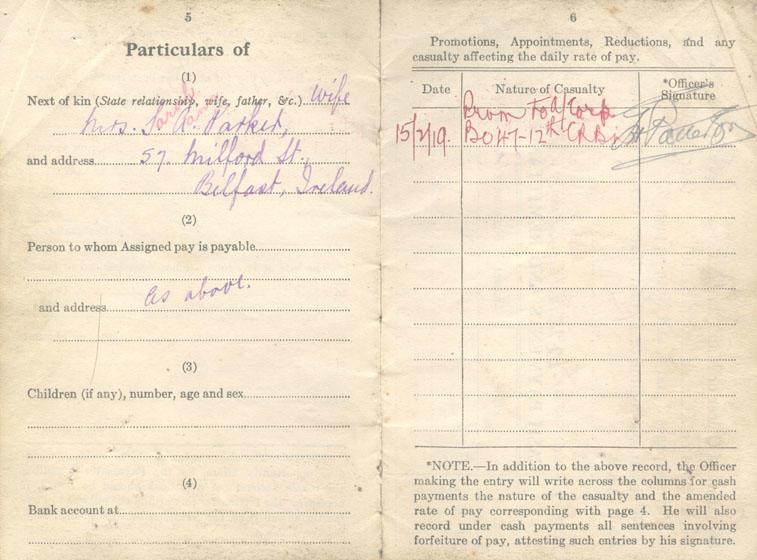 5
Particulars of
(1)
Next of kin (State relationship, wife, father, &c.) Wife
Sarah
Mrs. S. A. Parker,
and address 57. Milford St.,
Belfast, Ireland.
(2)
Person to whom Assigned pay is payable
and address as above.
(3)
Children (if any), number, age and sex
(4)
Bank account at
6
Promotions, Appointments, Reductions, and any
casualty affecting the daily rate of pay.
Date Nature of Casualty *Officer's Signature
Prom To a/Corp
15/2/19. BO 47-12th CRB
*NOTE.—In addition to the above record, the Officer
making the entry will write across the columns for cash
payments the nature of the casualty and the amended
rate of pay corresponding with page 4. He will also
record under cash payments all sentences involving
forfeiture of pay, attesting such entries by his signature.